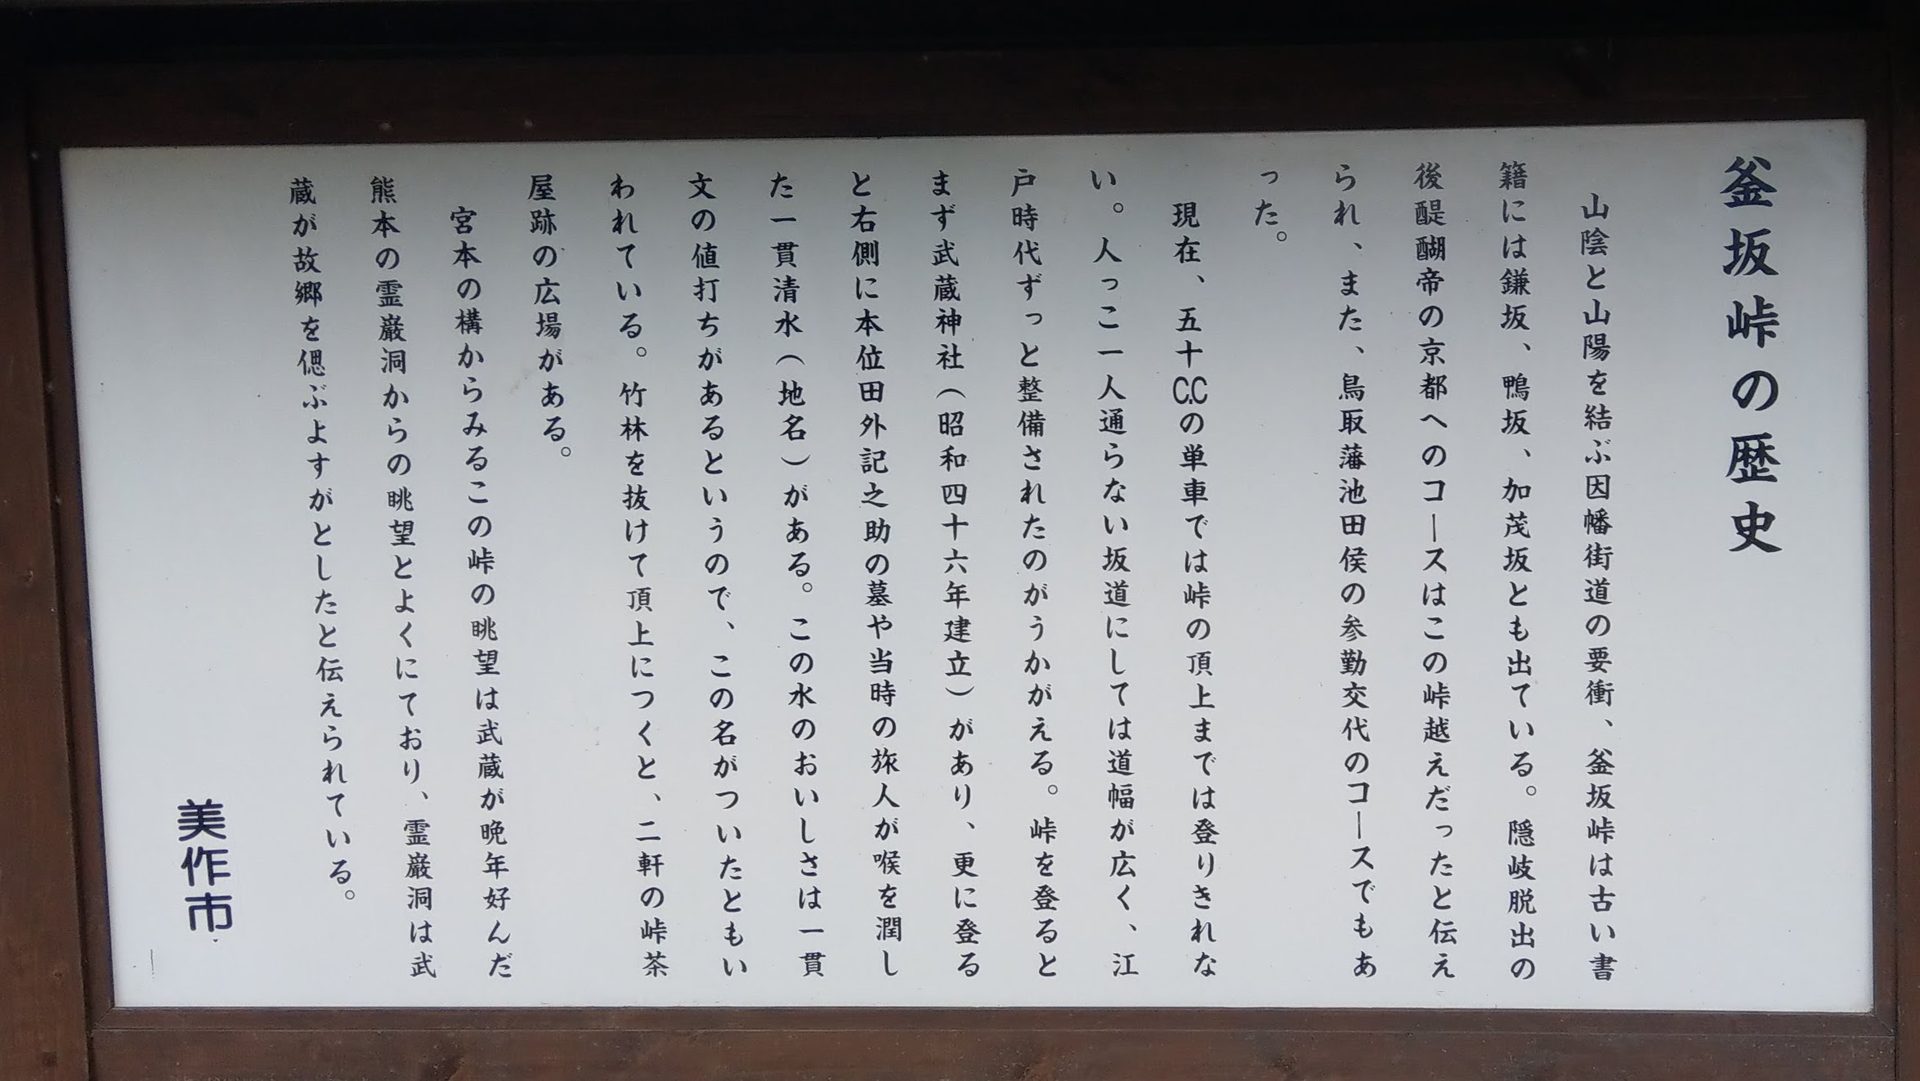 釜坂峠の歴史
山陰と山陽を結ぶ因幡街道の要衝、釜坂峠は古い書
籍には鎌坂、鴨坂、加茂坂とも出ている。隠岐脱出の
後醍醐帝の京都へのコースはこの峠越えだったと伝え
られ、また、鳥取藩池田侯の参勤交代のコースでもあ
った。
現在、五十C.Cの単車では峠の頂上までは登りきれな
い。人っこ一人通らない坂道にしては道幅が広く、江
戸時代ずっと整備されたのがうかがえる。峠を登ると
まず武蔵神社（昭和四十六年建立）があり、更に登る
と右側に本位田外記之助の墓や当時の旅人が喉を潤し
た一貫清水（地名）がある。この水のおいしさは一貫
文の値打ちがあるというので、この名がついたともい
われている。竹林を抜けて頂上につくと、二軒の峠茶
屋跡の広場がある。
宮本の構からみるこの峠の眺望は武蔵が晩年好んだ
熊本の霊巌洞からの眺望とよくにており、霊巌洞は武
蔵が故郷を偲ぶよすがとしたと伝えられている。
美作市